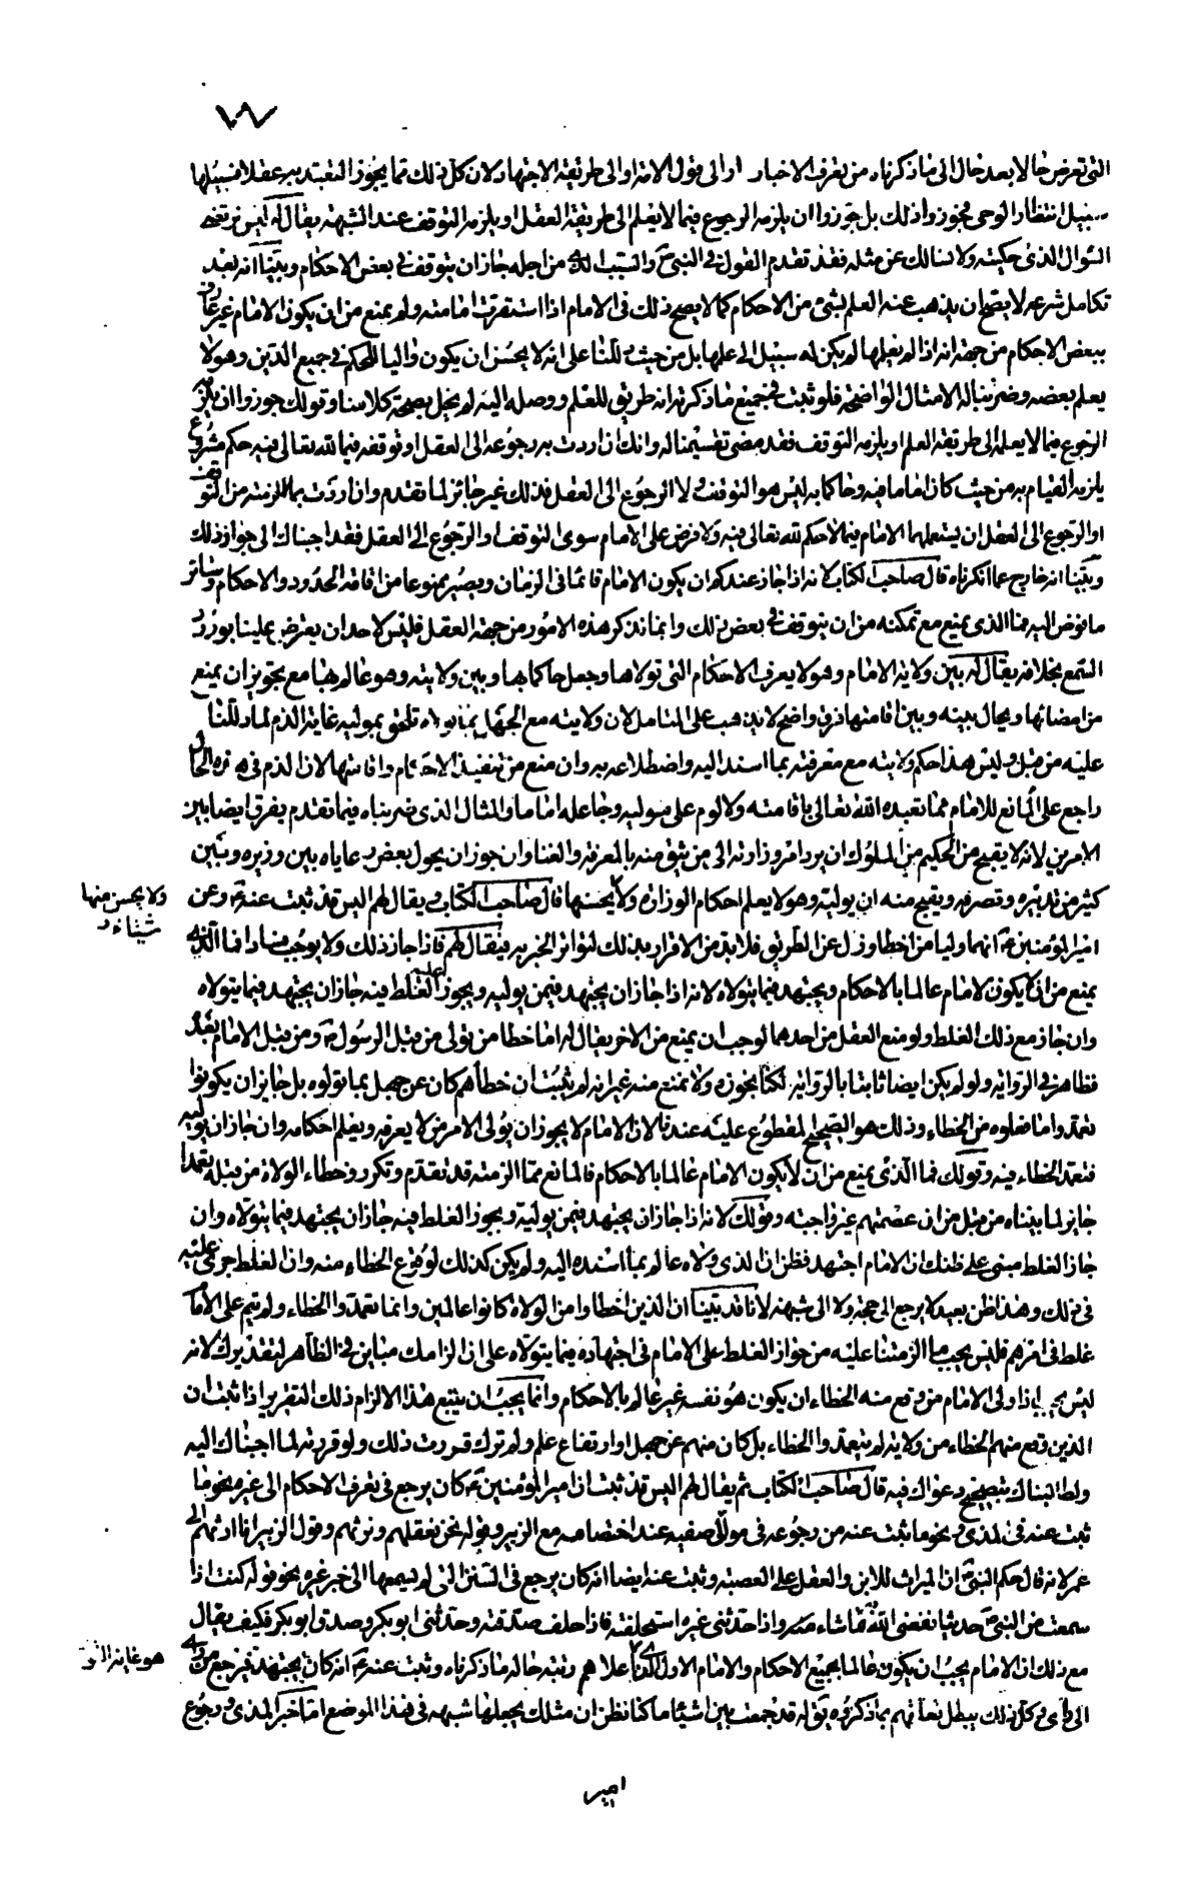 ٧٨
التي تعرض حالا بعد حال الى ما ذكرناه من تعرف الاخبار او الى قول الامة او الى طريقة الاجتهاد لان كل ذلك مما يجوز التعبد به عقلا فسبيلها
سبيل انتظار الوحي فجوزوا ذلك بل جوزوا ان يلزمه الرجوع فيما لا يعلم الى طريقة العقل او يلزمه التوقف عند الشبهة يقال له ليس نرتضي
السؤال الذي حكيته ولا نسالك عن مثله فقد تقدم القول في النبي ص والسبب الذي من اجله جاز ان يتوقف في بعض الاحكام وبينا انه بعد
تكامل شرعه لا يصح ان يذهب عنه العلم بشئ من الاحكام كما لا يصح ذلك في الامام اذا استقرت امامته ولم يمنع من ان يكون الامام غير عارف
ببعض الاحكام من جهة انه اذا لم يعلمها لم يكن له سبيل الى علمها بل من حيث دللنا على انه لا يحسن ان يكون واليا للحكم في جميع الدين وهو لا
يعلم بعضه وضربنا له الامثال الواضحة فلو ثبت في جميع ما ذكرته انه طريق للعلم ووصلة اليه لم يخل بصحة كلامنا وقولك جوزوا ان يلزمه
الرجوع فيما لا يعلمه الى طريقة العلم او يلزمه التوقف فقد مضى تقسيمنا له وانك ان اردت به رجوعه الى العقل او توقفه فيما لله تعالى فيه حكم مشروع
يلزمه القيام به من حيث كان اماما فيه وحاكما به ليس هو التوقف ولا الرجوع الى العقل فذلك غير جائز لما تقدم وان اردت بما الزمته من التوقف
او الرجوع الى العقل ان يستعملهما الامام فيما لا حكم لله تعالى فيه ولا فرض على الامام سوى التوقف او الرجوع الى العقل فقد اجبناك الى جواز ذلك
وبينا انه خارج عما انكرناه قال صاحب الكتاب لانه اذا جاز عندكم ان يكون الامام قائما في الزمان ويصير ممنوعا من اقامة الحدود والاحكام وسائر
ما فوض اليه فما الذي يمنع مع تمكنه من ان يتوقف في بعض ذلك وانما نذكر هذه الامور من جهة العقل فليس لاحد ان يعترض علينا بورود
السمع بخلافه يقال له بين ولاية الامام وهو لا يعرف الاحكام التي تولاها وجعل حاكما بها وبين ولايته وهو عالم بها مع تجويز ان يمنع
من امضائها ويحال بينه وبين اقامتها فرق واضح لا يذهب على المتامل لان ولايته مع الجهل بما تولاه تلحق بموليه غاية الذم لما دللنا
عليه من قبل وليس هذا حكم ولايته مع معرفته بما اسند اليه واضطلاعه به وان منع من تنفيذ الاحكام واقامتها لان الذم في هذه الحال
راجع على المانع للامام مما تعبده الله تعالى باقامته ولا لوم على موليه وجاعله اماما والمثال الذي ضربناه فيما تقدم يفرق ايضا بين
الامرين لانه لا يقبح من الحكيم من الملوك ان يرد امر وزارته الى من يثق منه بالمعرفة والغنا وان جوز ان يحول بعض رعاياه بين وزيره وبين
كثير من تدبيره وتصرفه ويقبح منه ان يوليه وهو لا يعلم احكام الوزارة ولا يحسنها قال صاحب الكتاب ويقال لهم اليس قد ثبت عنه ص وعن
ولا يحسن منها
شيئا
امير المؤمنين ع انهما وليا من اخطا وزل عن الطريق فلا بد من الاقرار بذلك لتواتر الخبر به فيقال لهم فاذا جاز ذلك ولا يوجب فسادا فما الذي
يمنع من ان لا يكون الامام عالما بالاحكام ويجتهد فيما يتولاه لانه اذا جاز ان يجتهد فيمن يوليه ويجوز عليه الغلط فيه جاز ان يجتهد فيما يتولاه
وان جاز مع ذلك الغلط ولو منع العقل من احدهما لوجب ان يمنع من الاخر يقال له اما خطا من تولى من قبل الرسول ص ومن قبل الامام بعده
فظاهر في الرواية ولو لم يكن ايضا ثابتا بالرواية لكنا نجوزه ولا نمنع منه غير انه لم يثبت ان خطأهم كان عن جهل بما تولوه بل جايز ان يكونوا
تعمدوا ما فعلوه من الخطاء وذلك هو الصحيح المقطوع عليه عندنا لان الامام لا يجوز ان يولى الامر من لا يعرفه ويعلم احكامه وان جاز ان يوليه
فتعمد الخطاء فيه وقولك فما الذي يمنع من ان لا يكون الامام عالما بالاحكام فالمانع مما الزمته قد تقدم وتكرر وخطاء الولاة من قبله تعمدا
جايز لما بيناه من قبل من ان عصمتهم غير واجبة وقولك لانه اذا جاز ان يجتهد فيمن يوليه ويجوز الغلط فيه جاز ان يجتهد فيما يتولاه وان
جاز الغلط مبني على ظنك ان الامام اجتهد فظن ان الذي ولاه عالم بما اسنده اليه ولم يكن كذلك لوقوع الخطاء منه وان الغلط جرى عليه
في ذلك وهذا ظن بعيد لا يرجع الى حجة ولا الى شبهة لانا قد بينا ان الذين اخطاوا من الولاة كانوا عالمين وانما تعمدوا الخطاء ولم يتم على الامام
غلط في امرهم فليس يجب ما الزمتنا عليه من جواز الغلط على الامام في اجتهاده فيما يتولاه على ان الزامك متباين في الظاهر لتقديرك لانه
ليس يجب اذا ولى الامام من وقع منه الخطاء ان يكون هو نفسه غير عالم بالاحكام وانما يجب ان يتبع هذا الالزام ذلك التقرير اذا ثبت ان
الذين وقع منهم الخطاء من ولاية لم يتعمدوا الخطاء بل كان منهم عن جهل او ارتفاع علم ولم نرك قررت ذلك ولو قررته لما اجبناك اليه
ولطالبناك بتصحيح دعواك فيه قال صاحب الكتاب ثم يقال لهم اليس قد ثبت ان امير المؤمنين ع كان يرجع في تعرف الاحكام الى غيره نحو ما
ثبت عنه في المذي ونحو ما ثبت عنه من رجوعه في موالي صفية عند اختصامه مع الزبير وقوله نحن نعقلهم ونرثهم وقول الزبير انا ارثهم الى
عمر لانه قال حكم النبي ص ان الميراث للابن والعقل على العصبة وثبت عنه ايضا انه كان يرجع في السنن التي لم يسمعها الى خبر غيره نحو قوله كنت اذا
سمعت من النبي ص حديثا نفعني الله به ما شاء منه واذا حدثني غيره استحلفته فاذا حلف صدقته وحدثني ابو بكر وصدق ابو بكر فكيف يقال
مع ذلك ان الامام يجب ان يكون عالما بجميع الاحكام والامام الاول الذي اعلاهم رتبة حاله ما ذكرناه وثبت عنه ع انه كان يجتهد فيرجع من راي
الى راي وكل ذلك يبطل تعلقهم بما ذكروه يق له قد جمعت بين اشياء ما كنا نظن ان مثلك يجعلها شبهة في هذا الموضع اما خبر المذي ورجوع
امير